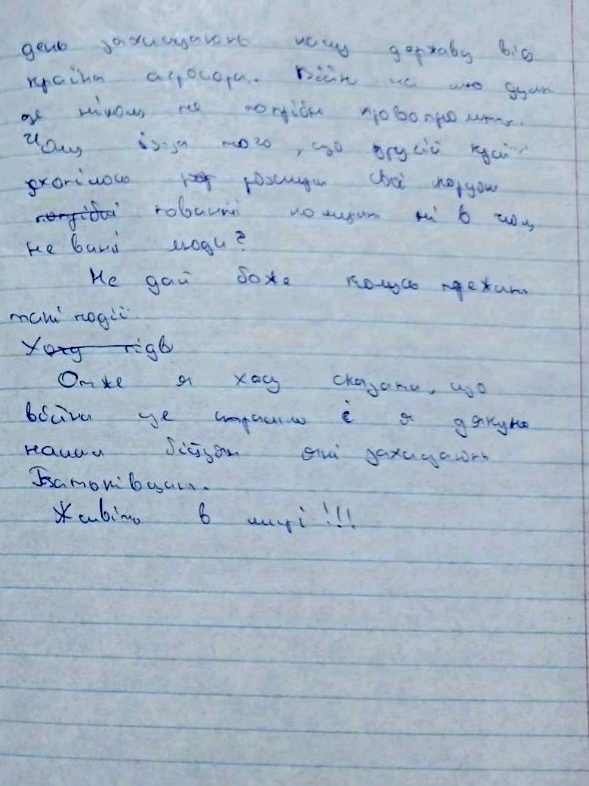 день захищають нашу державу від
країна агросора. Війн на мою думк
це ніком не потрібн кровопролиття.
Чому із-за того, що другій краї
схотілося розшири свої кордон
повинні ни в чом
не вині люди?
Не дай боже комусь прежити
такі події.
Отже я хочу сказати, що
війна це страшно є я дякую
нашим бійцям які захищають
Батьківщин.
Живіть в мирі!!!